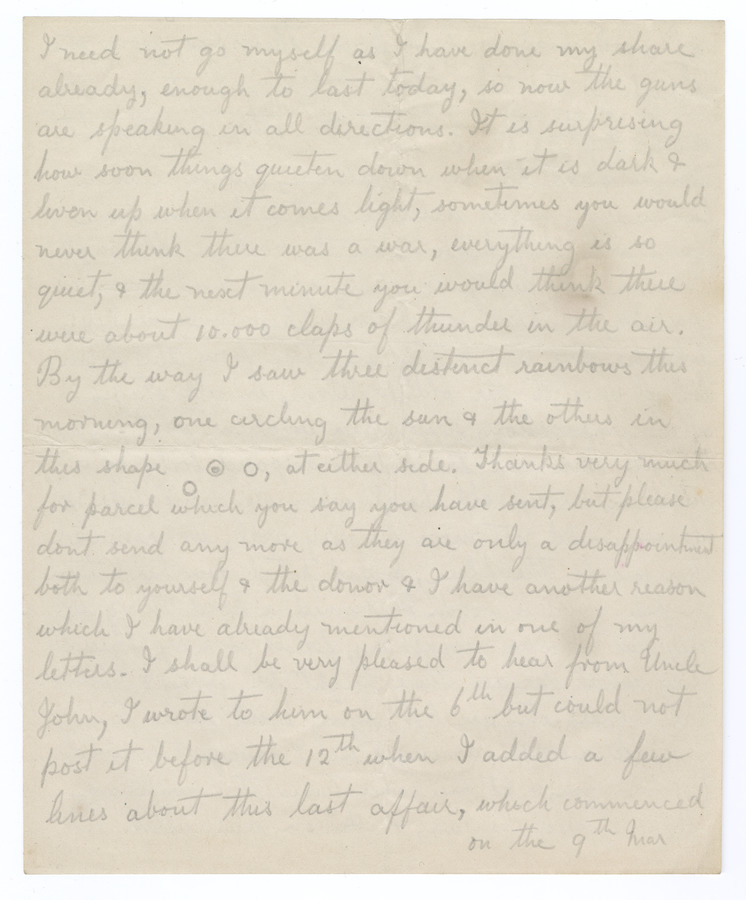 I need not go myself as I have done my share
already, enough to last today, so now the guns
are speaking in all directions. It is surprising
how soon things quieten down when it is dark &
liven up when it comes light, sometimes you would
never think there was a war, everything is so
quiet, & the next minute you would think there
were about 10.000 claps of thunder in the air.
By the way I saw three distinct rainbows this
morning, one circling the sun & the others in
this shape , at either side. Thanks very much
for parcel which you say you have sent, but please
dont send any more as they are only a disappointment
both to yourself & the donor & I have another reason
which I have already mentioned in one of my
letters. I shall be very pleased to hear from Uncle
John, I wrote to him on the 6th but could not
post it before the 12th when I added a few
lines about this last affair, which commenced
on the 9th Mar